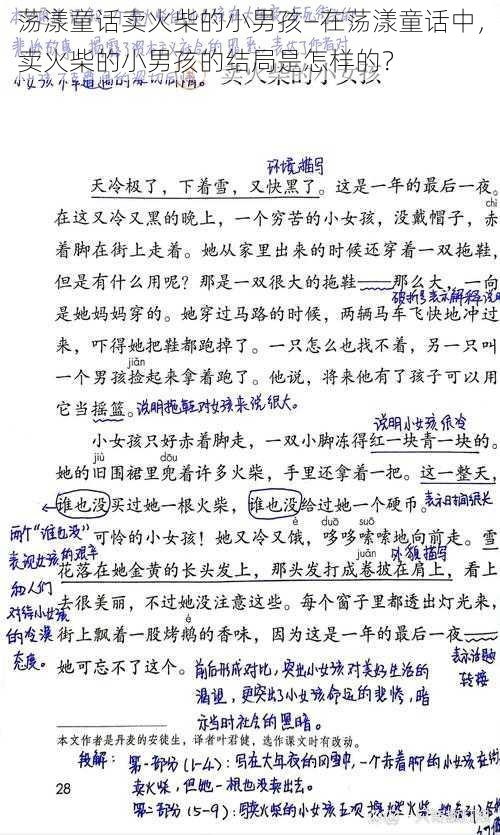 荡漾童话卖火柴的小男孩—在荡漾童话中，
卖火柴的小男孩的结局是怎样的？
卖火柴的小女孩
环境描写
天冷极了，下着雪，又快黑了。这是一年的最后一夜。
chì
在这又冷又黑的晚上，一个穷苦的小女孩，没戴帽子，赤
着脚在街上走着。她从家里出来的时候还穿着一双拖鞋，
但是有什么用呢？那是一双很大的拖鞋——那么大，一向
破折号表示解释说明
是她妈妈穿的。她穿过马路的时候，两辆马车飞快地冲过
来，吓得她把鞋都跑掉了。一只怎么也找不着，另一只叫
jiǎn
一个男孩捡起来拿着跑了。他说，将来他有了孩子可以用
它当摇篮。说明拖鞋对女孩来说很大。
说明小女孩很冷
小女孩只好赤着脚走，一双小脚冻得红一块青一块的。
jiù dōu
她的旧围裙里兜着许多火柴，手里还拿着一把。这一整天，
谁也没买过她一根火柴，谁也没给过她一个硬币。表示时间很长
è duō suō
可怜的小女孩！她又冷又饿，哆哆嗦嗦地向前走。雪
juǎn 外貌描写
花落在她金黄的长头发上，那头发打成卷披在肩上，看上
去很美丽，不过她没注意这些。每个窗子里都透出灯光来，
é
街上飘着一股烤鹅的香味，因为这是一年的最后一夜——
她可忘不了这个。
两个“谁也没”
表现女孩的艰辛
和人们
对待小女孩
的冷漠
态度。
表示话题
转接
前后形成对比，突出小女孩对美好生活的
渴望，更突出了小女孩命运的悲惨，暗
示当时社会的黑暗。
本文作者是丹麦的安徒生，译者叶君健，选作课文时有改动。
28
段解：第一部分（1-4）：写在大年夜的风雪中，一个赤着脚的小女孩在街
卖火柴，但她一根也没卖出去。
第二部分（5-9）：写卖火柴的小女孩五次擦燃火柴